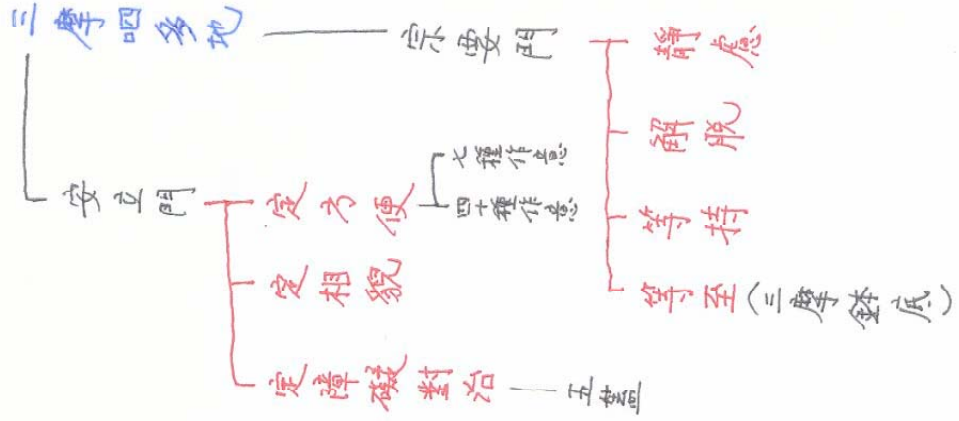 三摩呬多地
宗要門
靜慮
解脫
等持
等至(三摩鉢底)
安立門
定方便
七種作意
四十種作意
定相貌
定障礙對治
五蓋